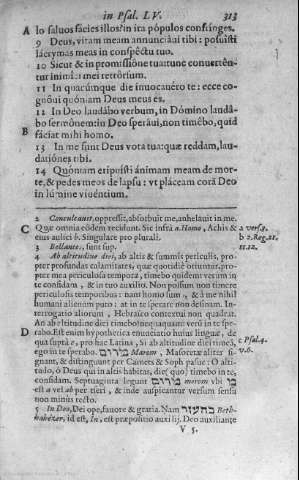 in Psal. LV. 313
A lo saluos facies illos? in ira pópulos confrínges.
9 Deus, vitam meam annunciáui tibi: posuísti
lácrymas meas in conspéctu tuo.
10 Sicut & in promissióne tua: tunc conuertén-
tur inimíci mei retrórsum.
11 In quacúmque die inuocauéro te: ecce co-
gnóui quóniam Deus meus es.
12 In Deo laudábo verbum, in Dómino laudá-
B bo sermónem: in Deo speráui, non timébo, quid
fáciat mihi homo.
13 In me sunt Deus vota tua: quæ reddam, lau-
datiónes tibi.
14 Quóniam eripuísti ánimam meam de mor-
te, & pedes meos de lapsu: vt pláceam cora Deo
in lúmine viuéntium.
2 Conculcauit, oppressit, absorbuit me, anhelauit in me.
C Quæ omnia eódem recidunt. Sic infrà a. Homo, Achis & a vers. 2.
eius aulici b. Singulare pro plurali. b 2. Reg. 21.
3 Bellantes, sunt sup. 11. 12.
4 Ab altitudine diei, ab altis & summis periculis, pro-
pter profundas calamitates, quæ quotidie oriuntur, pro-
pter mea periculosa tempora, timebo quidem: verùm in
te confidam, & in tuo auxilio. Non possum non timere
periculosis temporibus: nam homo sum, & à me nihil
humani alienum puto: at in te sperare non desinam. In-
terrogatio aliorum, Hebræo contextui non quadrat.
An ab altitudine diei timebo? nequaquam: verò in te spe-
D rabo. Est enim hypothetica enunciatio huius linguæ, de
qua suprà c, pro hac Latina, Si ab altitudine diei timeā, c Psal. 4.
ego in te sperabo. מרום Marom, Masoretæ aliter si- v. 6.
gnant, & distinguunt per Camets & Soph pasuc: ô Alti-
tudo, ô Deus qui in altis habitas, die, quo timebo in te,
confidam. Septuaginta legunt מרום merom vbi מ
est à vel ab per tseri, & inde auspicantur versum sensu
non minùs recto.
5 In Deo, Dei ope, fauore & gratia. Nam בהעזר Beth-
hahézer, id est, In, est præpositio auxilij. Deo auxiliante
V 5.